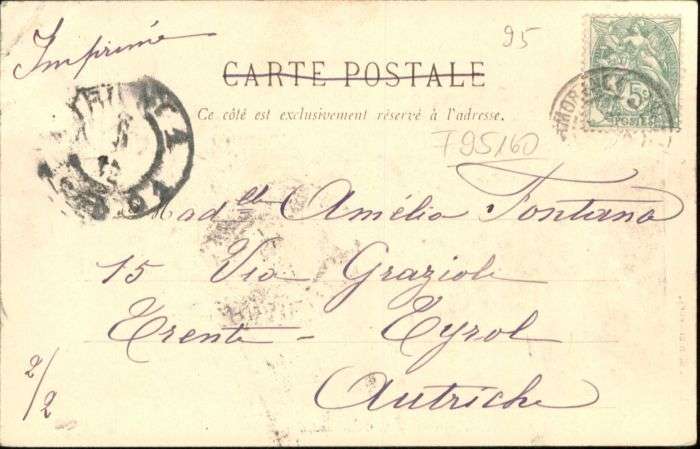 Imprimé
95
CARTE POSTALE
Ce côté est exclusivement réservé à l'adresse.
5c
POSTES
T95160
Madelle Amélia Fontana
15 Via Graziole
Trente - Tyrol
Autriche
2/2